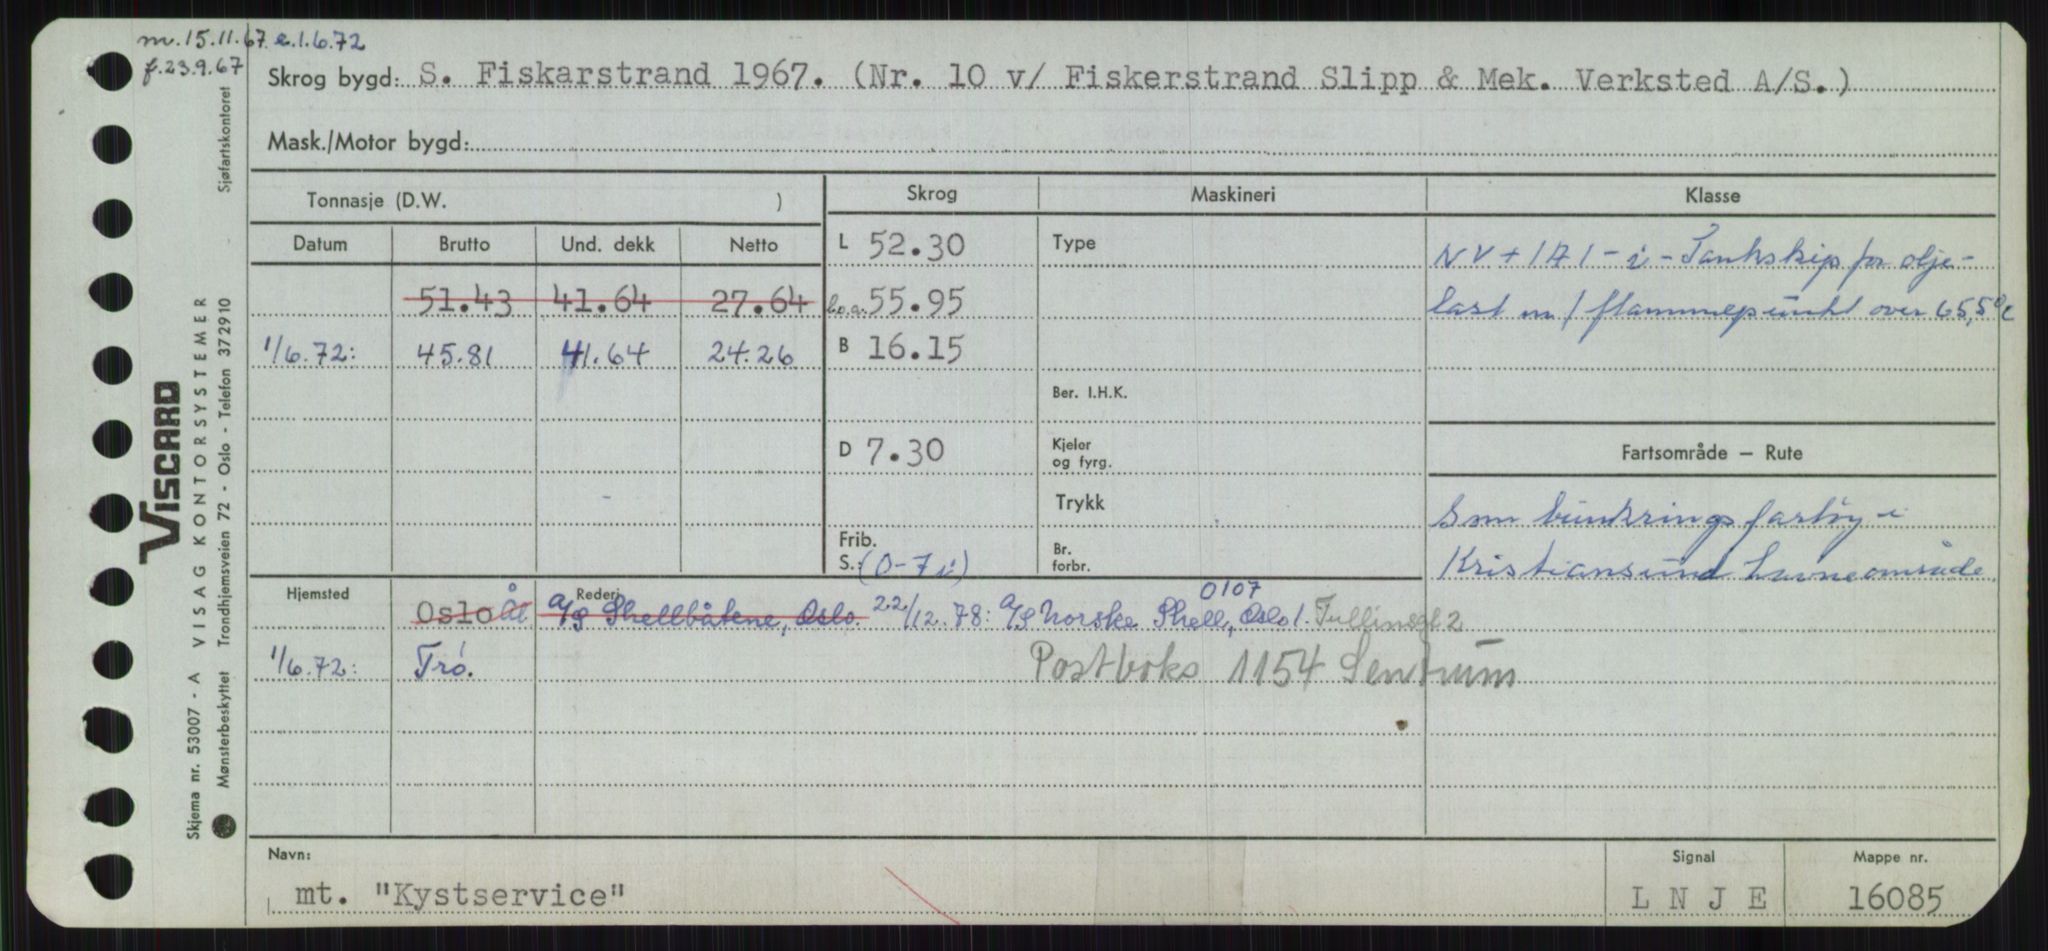 m. 15.11.67 e.1.6.72
f. 23.9.67
Skrog bygd: S. Fiskarstrand 1967. (Nr. 10 v/ Fiskerstrand Slipp & Mek. Verksted A/S.)
Mask./Motor bygd:
Tonnasje (D.W. ) Skrog Maskineri Klasse
Datum Brutto Und. dekk Netto L 52.30 Type NV + 1A1 - i - Tankskip for olje-
51.43 41.64 27.64 lo.a. 55.95 last m/ flammepunkt over 65,5°C
1/6.72: 45.81 41.64 24.26 B 16.15
Ber. I.H.K.
D 7.30 Kjeler og fyrg. Fartsområde — Rute
Trykk Som bunkringsfartøy i
Frib. S.: (0-7 i) Br. forbr. Kristiansund havneområde.
Hjemsted Rederi 0107
Oslo A/S Shellbåtene, Oslo. 22/12.78: A/S Norske Shell, Oslo 1. Tullinsgt 2
1/6.72: Tró. Postboks 1154 Sentrum
Navn: Signal Mappe nr.
mt. "Kystservice" L N J E 16085
VISCARD
Skjema nr. 53007 - A VISAG KONTORSYSTEMER
Mønsterbeskyttet Trondhjemsveien 72 - Oslo - Telefon 372910 Sjøfartskontoret